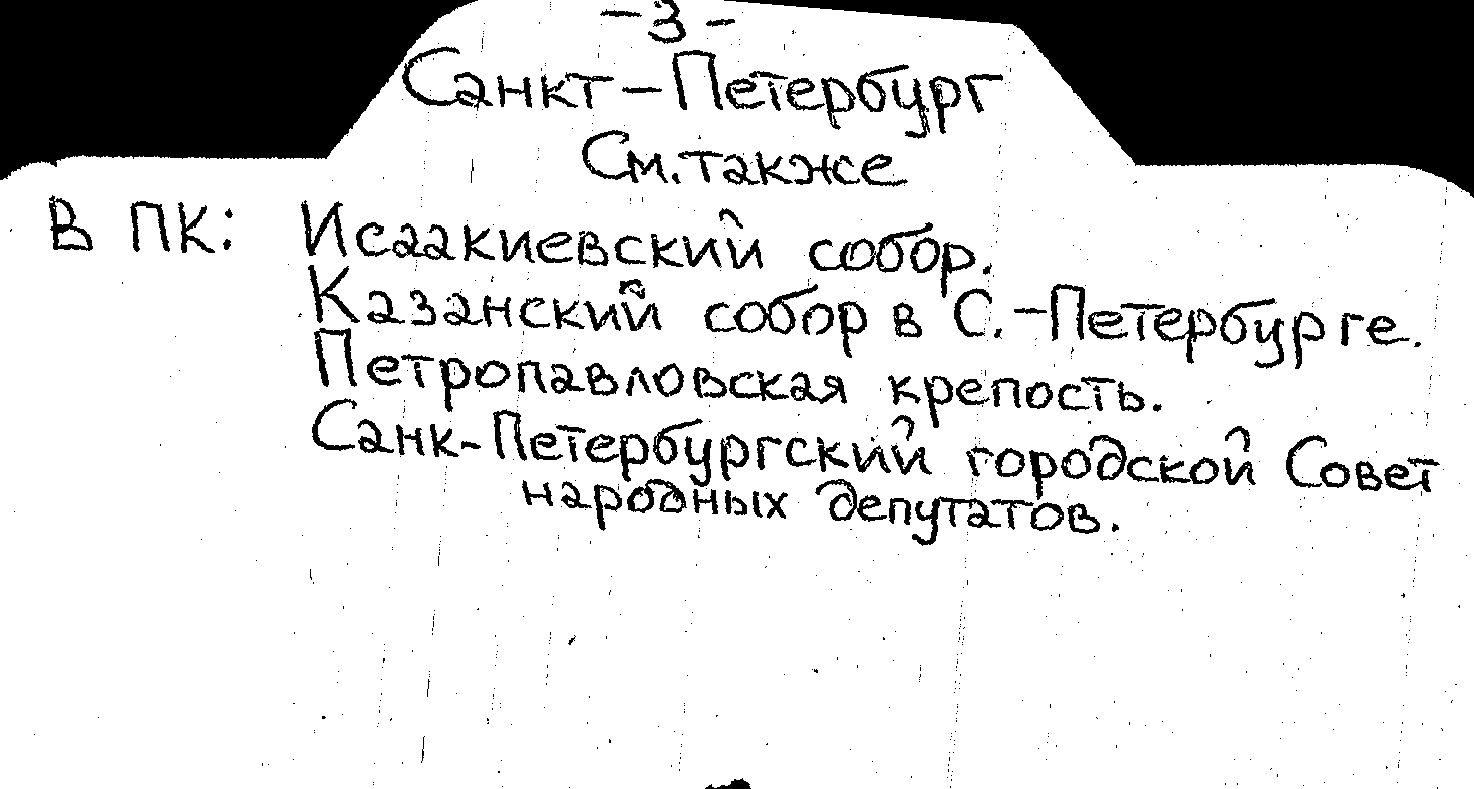 -3-
Санкт-Петербург
См. также
В ПК: Исаакиевский собор.
Казанский собор в С.-Петербурге.
Петропавловская крепость.
Санк-Петербургский городской Совет
народных депутатов.